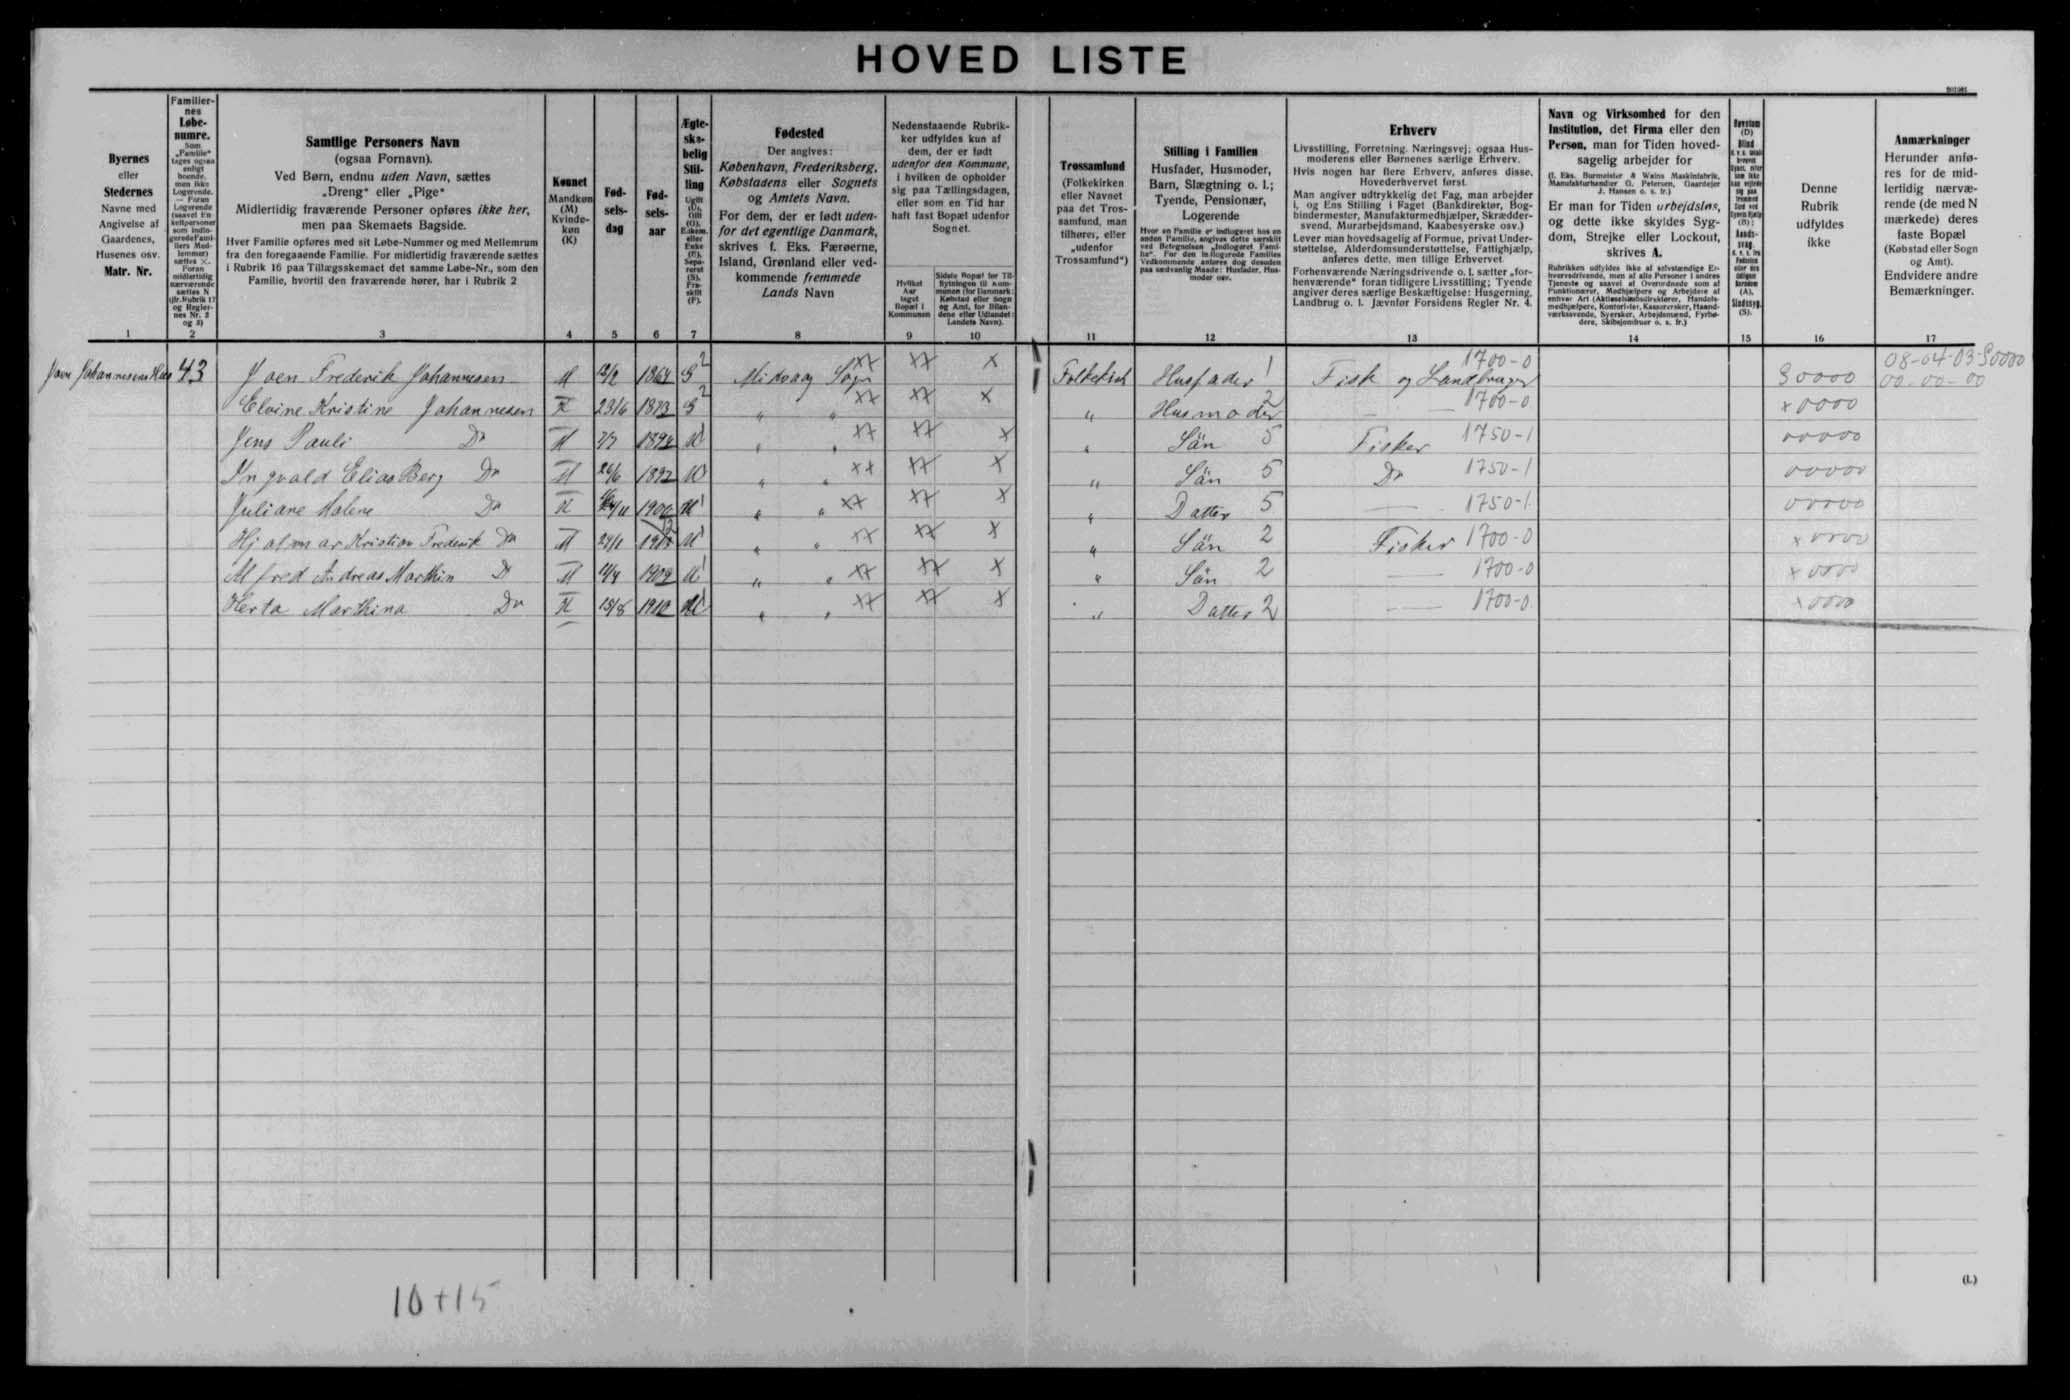 HOVED LISTE
Byernes
eller
Stedernes
Navne med
Angivelse af
Gaardenes,
Husenes osv.
Matr. Nr.
1
Familier-
nes
Løbe-
numre.
Som
„Familie“
tages ogsaa
enligt
boende,
men ikke
Logerende.
— Foran
Logerende
sættes ×.
Foran
midlertidig
nærværende
sættes N
(jfr. Rubrik 17
og Regler-
nes Nr. 2
og 3)
2
Samtlige Personers Navn
(ogsaa Fornavn).
Ved Børn, endnu uden Navn, sættes
„Dreng“ eller „Pige“
Midlertidig fraværende Personer opføres ikke her,
men paa Skemaets Bagside.
Hver Familie opføres med sit Løbe-Nummer og med Mellemrum
fra den foregaaende Familie. For midlertidig fraværende sættes
i Rubrik 16 paa Tillægsskemaet det samme Løbe-Nr., som den
Familie, hvortil den fraværende hører, har i Rubrik 2
3
Kønnet
Mandkøn
(M)
Kvinde-
køn
(K)
4
Fød-
sels-
dag
5
Fød-
sels-
aar
6
Ægte-
ska-
belig
Stil-
ling
Ugift
(U),
Gift
(G),
Enkem.
eller
Enke
(E),
Sepa-
reret
(S),
Fra-
skilt
(F).
7
Fødested
Der angives:
København, Frederiksberg,
Købstadens eller Sognets
og Amtets Navn.
For dem, der er født uden-
for det egentlige Danmark,
skrives f. Eks. Færøerne,
Island, Grønland eller ved-
kommende fremmede
Lands Navn
8
Nedenstaaende Rubrik-
ker udfyldes kun af
dem, der er født
udenfor den Kommune,
i hvilken de opholder
sig paa Tællingsdagen,
eller som en Tid har
haft fast Bopæl udenfor
Sognet.
Hvilket
Aar
taget
Bopæl i
Kommunen
9
Sidste Bopæl før Til-
flytningen til Kom-
munen (for Danmark:
Købstad eller Sogn
og Amt, for Bilan-
dene eller Udlandet:
Landets Navn).
10
Trossamfund
(Folkekirken
eller Navnet
paa det Tros-
samfund, man
tilhører, eller
„udenfor
Trossamfund“)
11
Stilling i Familien
Husfader, Husmoder,
Barn, Slægtning o. l.;
Tyende, Pensionær,
Logerende
Hvor en Familie er indlogeret hos en
anden Familie, angives dette særskilt
ved Betegnelsen „Indlogeret Fami-
lie“. For den indlogerede Families
Vedkommende anføres dog desuden
paa sædvanlig Maade: Husfader, Hus-
moder osv.
12
Erhverv
Livsstilling, Forretning, Næringsvej; ogsaa Hus-
moderens eller Børnenes særlige Erhverv.
Hvis nogen har flere Erhverv, anføres disse,
Hovederhvervet først.
Man angiver udtrykkelig det Fag, man arbejder
i, og Ens Stilling i Faget (Bankdirektør, Bog-
bindermester, Manufakturmedhjælper, Skrædder-
svend, Murarbejdsmand, Kaabesyerske osv.)
Lever man hovedsagelig af Formue, privat Under-
støttelse, Alderdomsunderstøttelse, Fattighjælp,
anføres dette, men tillige Erhvervet
Forhenværende Næringsdrivende o. l. sætter „for-
henværende“ foran tidligere Livsstilling; Tyende
angiver deres særlige Beskæftigelse: Husgerning,
Landbrug o. l. Jævnfør Forsidens Regler Nr. 4.
13
Navn og Virksomhed for den
Institution, det Firma eller den
Person, man for Tiden hoved-
sagelig arbejder for
(f. Eks. Burmeister & Wains Maskinfabrik,
Manufakturhandler G. Petersen, Gaardejer
J. Hansen o. s. fr.)
Er man for Tiden arbejdsløs,
og dette ikke skyldes Syg-
dom, Strejke eller Lockout,
skrives A.
Rubrikken udfyldes ikke af selvstændige Er-
hvervsdrivende, men af alle Personer i andres
Tjeneste og saavel af Overordnede som af
Funktionærer, Medhjælpere og Arbejdere af
enhver Art (Aktieselskabsdirektører, Handels-
medhjælpere, Kontorister, Kasserersker, Haand-
værkssvende, Syersker, Arbejdsmænd, Fyrbø-
dere, Skibsjomfruer o. s. fr.)
14
Døvstum
(D)
Blind
(B);
Aands-
svag,
(A),
Sindssyg,
(S).
15
Denne
Rubrik
udfyldes
ikke
16
Anmærkninger
Herunder anfø-
res for de mid-
lertidig nærvæ-
rende (de med N
mærkede) deres
faste Bopæl
(Købstad eller Sogn
og Amt).
Endvidere andre
Bemærkninger.
17
Joen Johannesens Hus 43 Joen Frederik Johannesen M 1864 G 2 Midvaag Sogn ×× ×× × Folkekirk Husfader 1 Fisk og Landbruger 1700-0 90000 08-04-03-90000 00-00-00
Elvine Kristine Johannesen K 23/6 1873 G 2 " " ×× ×× × " Husmoder 2 — — 1700-0 x0000
Jens Pauli Do M 7/7 1894 U 1 " " ×× ×× × " Sön 5 Fisker 1750-1 00000
Ingvald Elias Berg Do M 26/6 1897 U " " ×× ×× × " Sön 5 Do 1750-1 00000
Juliane Malene Do K 1900 U 1 " " ×× ×× × " Datter 5 — 1750-1 00000
Hjalmar Kristian Frederik Do M 29/1 U 1 " " ×× ×× × " Sön 2 Fisker 1700-0 x0000
Alfred Andreas Marthin Do M 1909 U 1 " " ×× ×× × " Sön 2 — 1700-0 x0000
Herta Marthina Do K 15/8 1910 U 1 " " ×× ×× × " Datter 2 — 1700-0 x0000
10+15
(L)